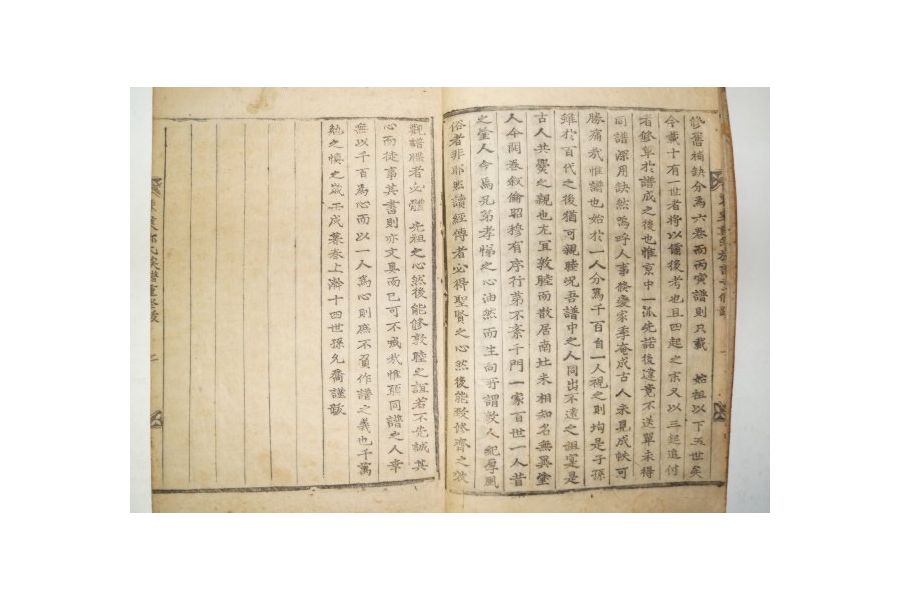 修舊補缺分爲六卷而丙寅譜則只載 始祖以下五世矣
今載十有一世者將以備後考也且四起之末又以三起追付
者修單於譜成之後也惟京中一派先諾後違竟不送單未得
同譜深用訣然嗚呼人事後變家季庵成古人未見成帙可
勝痛哉惟譜也始於一人分爲千百自一人視之則均是子孫
雖於百代之後猶可親睦况吾譜中之人同出不遠之祖寔是
古人共爨之親也尤宜敦睦而散居南北未相知名無異塗
人今開卷叙倫昭穆有序行第不紊千門一家百世一人昔
之塗人今爲兄弟孝悌之心油然而生向所謂敦人紀厚風
俗者非耶然讀經傳者必得聖賢之心然後能致修齊之效
觀譜牒者必體 先祖之心然後能修敦睦之誼若不先誠其
心而徒事其書則亦文具而已可不戒哉惟願同譜之人幸
無以千百爲心而以一人爲心則庶不負作譜之義也千萬
勉之愼之歲壬戌暮春上澣十四世孫允喬謹跋
氏族譜重修跋
二